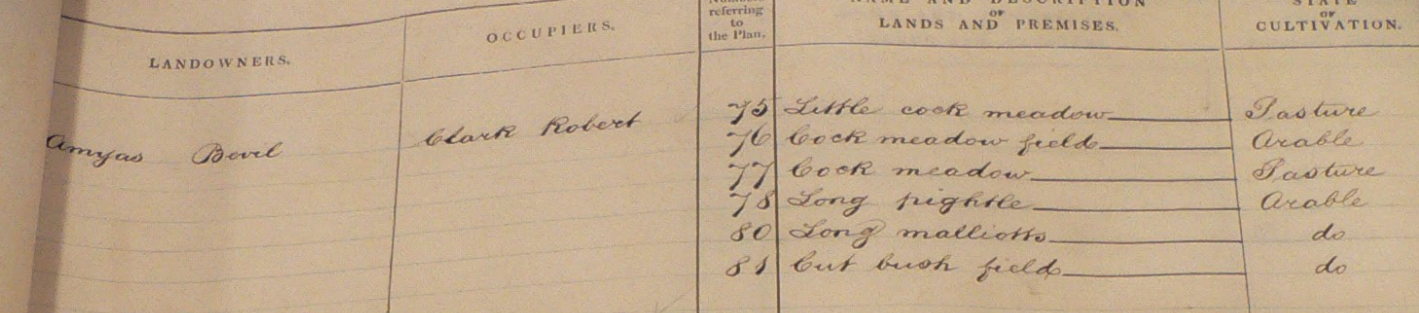 LANDOWNERS. OCCUPIERS. Numbers referring to the Plan. NAME AND DESCRIPTION OF LANDS AND PREMISES. STATE OF CULTIVATION.
Amyas Bevil Clark Robert 75 Little cock meadow Pasture
76 Cock meadow field Arable
77 Cock meadow Pasture
78 Long pightle Arable
80 Long malliotts do
81 Cut bush field do